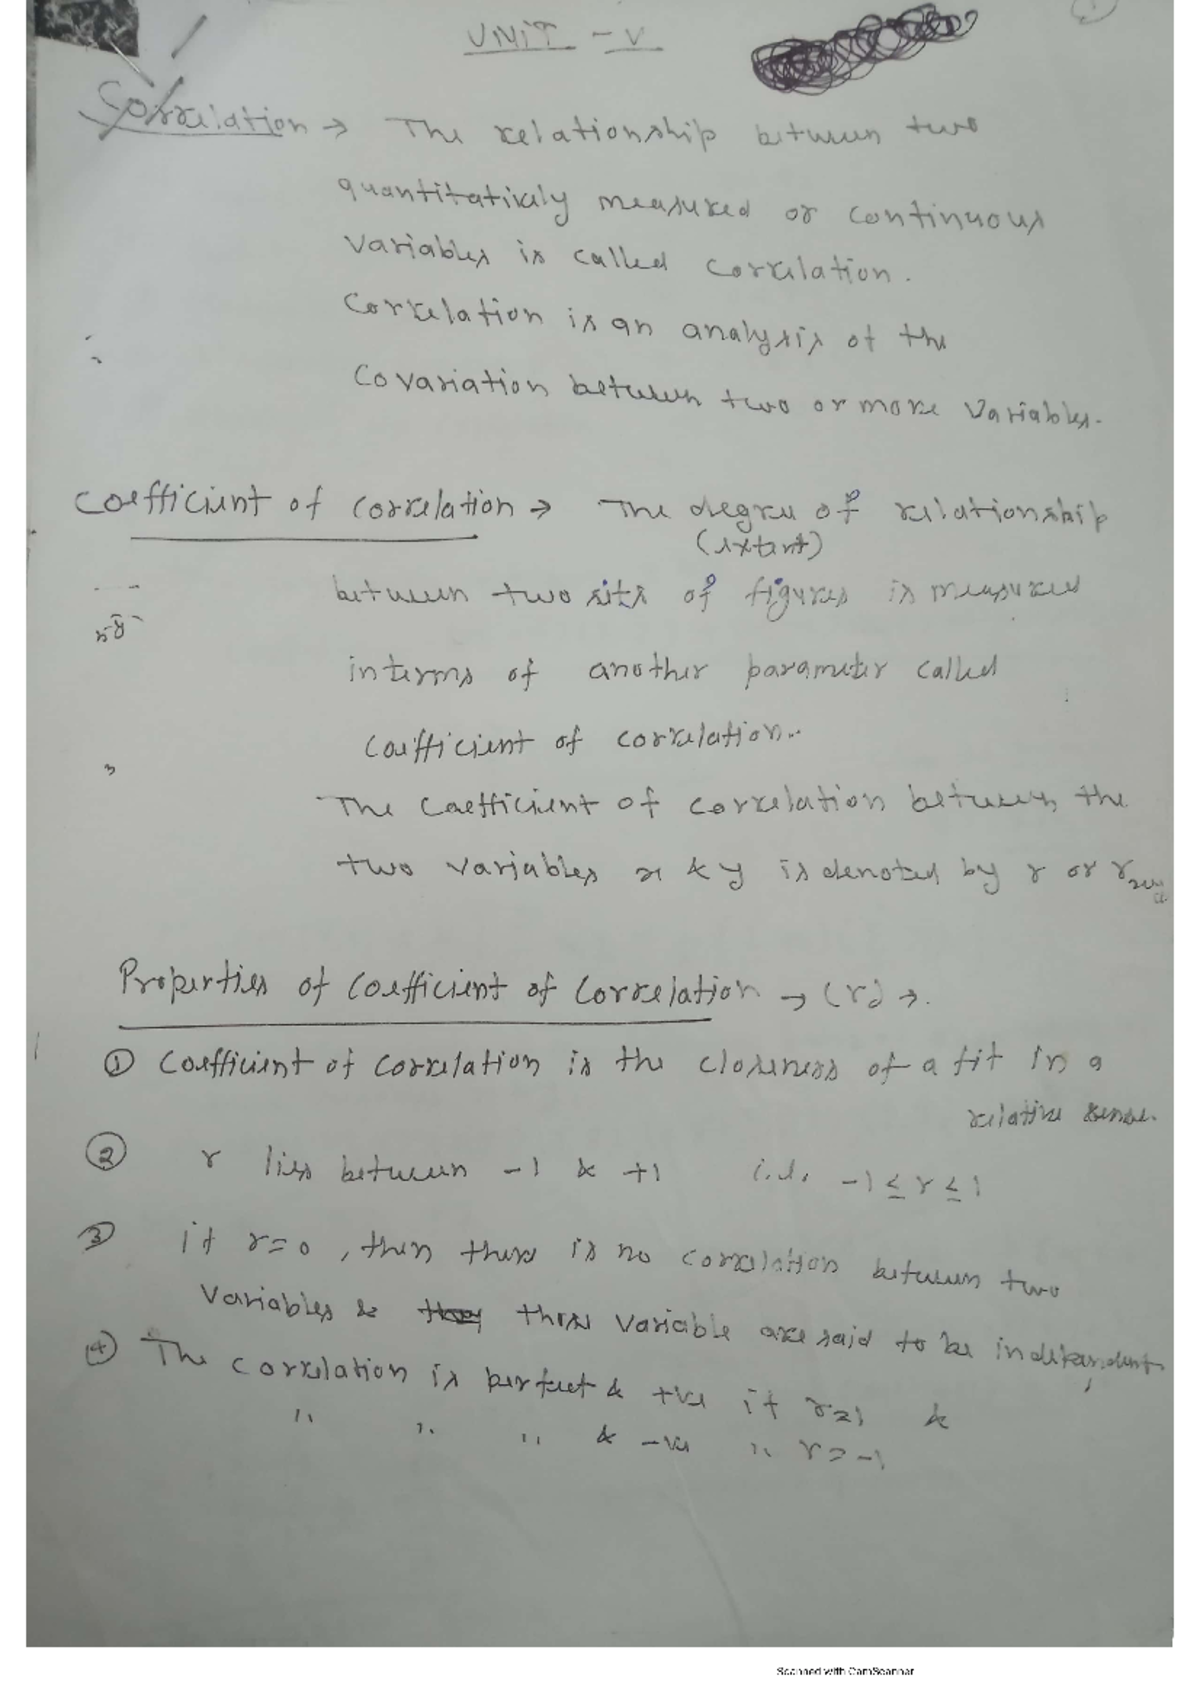 UNIT - V
Correlation → The relationship between two
quantitatively measured or continuous
variables is called correlation.
Correlation is an analysis of the
covariation between two or more variables.
Coefficient of correlation → The degree of relationship
(extent)
between two sets of figures is measured
interms of another parameter called
coefficient of correlation.
The coefficient of correlation between the
two variables x & y is denoted by r or rxy
Properties of coefficient of correlation → (r) →.
① Coefficient of correlation is the closeness of a fit in a
relative sense.
② r lies between -1 & +1 i.e. -1 ≤ r ≤ 1
③ if r=0, then there is no correlation between two
variables & these variable are said to be independent
④ The correlation is perfect & +ve if r=1 &
" " " & -ve " r = -1
Scanned with CamScanner